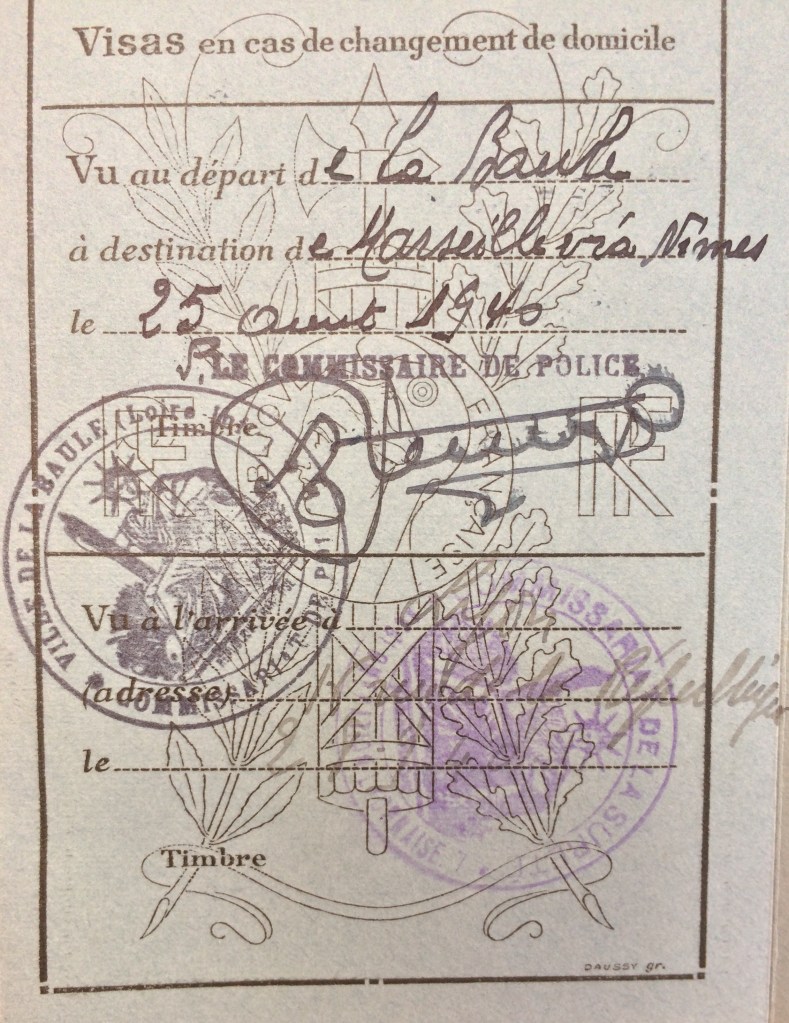 Visas en cas de changement de domicile
Vu au départ de La Baule
à destination de Marseille via Nîmes
le 25 aout 1940
P. LE COMMISSAIRE DE POLICE
Timbre
VILLE DE LA BAULE (Loire
COMMISSARIAT DE POLICE
RF
RF
FRANÇAISE
Vu à l'arrivée à
(adresse)
le 2
COMMISSARIAT DE LA SURETÉ
Timbre
DAUSSY gr.